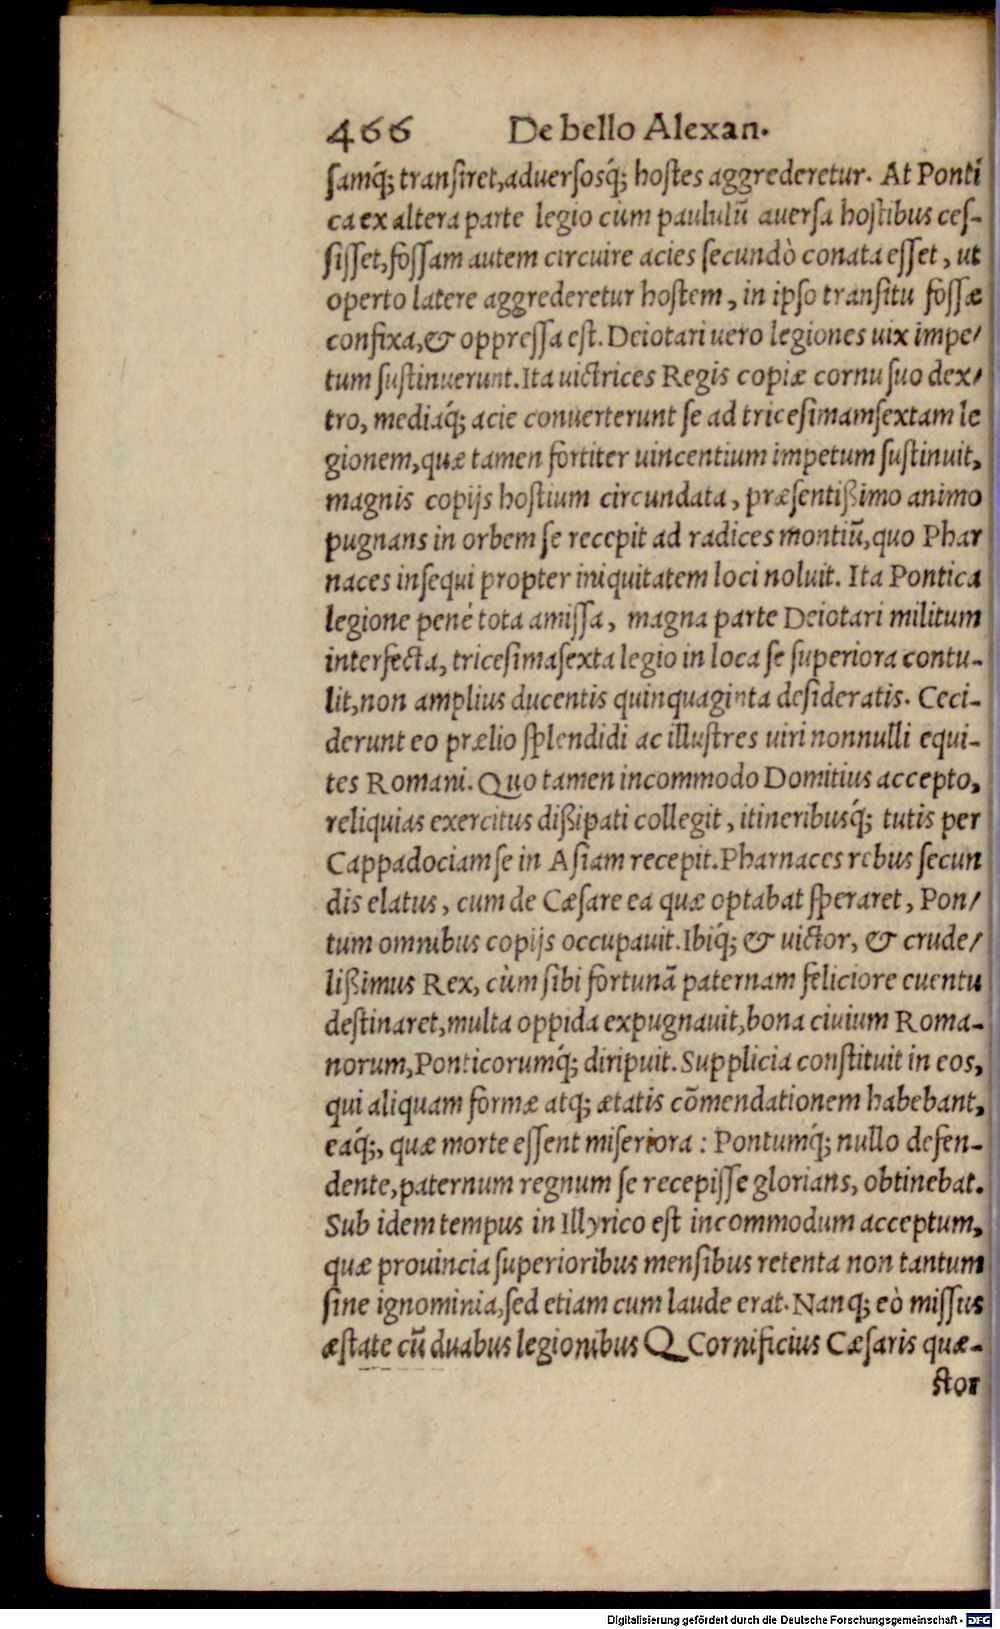 466 De bello Alexan.
samq́; transiret, aduersosq́; hostes aggrederetur. At Ponti
ca ex altera parte legio cùm paululũ auersa hostibus ces-
sisset, fossam autem circuire acies secundò conata esset, ut
operto latere aggrederetur hostem, in ipso transitu fossæ
confixa, & oppressa est. Deiotari uero legiones uix impe/
tum sustinuerunt. Ita uictrices Regis copiæ cornu suo dex/
tro, mediaq́; acie conuerterunt se ad tricesimamsextam le
gionem, quæ tamen fortiter uincentium impetum sustinuit,
magnis copijs hostium circundata, præsentißimo animo
pugnans in orbem se recepit ad radices montiũ, quo Phar
naces insequi propter iniquitatem loci noluit. Ita Pontica
legione penè tota amissa, magna parte Deiotari militum
interfecta, tricesimasexta legio in loca se superiora contu-
lit, non amplius ducentis quinquaginta desideratis. Ceci-
derunt eo prælio splendidi ac illustres uiri nonnulli equi-
tes Romani. Quo tamen incommodo Domitius accepto,
reliquias exercitus dißipati collegit, itineribusq́; tutis per
Cappadociam se in Asiam recepit. Pharnaces rebus secun
dis elatus, cum de Cæsare ea quæ optabat speraret, Pon/
tum omnibus copijs occupauit. Ibiq́; & uictor, & crude/
lißimus Rex, cùm sibi fortunã paternam feliciore euentu
destinaret, multa oppida expugnauit, bona ciuium Roma-
norum, Ponticorumq́; diripuit. Supplicia constituit in eos,
qui aliquam formæ atq; ætatis cõmendationem habebant,
eaq́;, quæ morte essent miseriora : Pontumq́; nullo defen-
dente, paternum regnum se recepisse glorians, obtinebat.
Sub idem tempus in Illyrico est incommodum acceptum,
quæ prouincia superioribus mensibus retenta non tantum
sine ignominia, sed etiam cum laude erat. Nanq; eò missus
æstate cũ duabus legionibus Q. Cornificius Cæsaris quæ-
stor
Digitalisierung gefördert durch die Deutsche Forschungsgemeinschaft - DFG